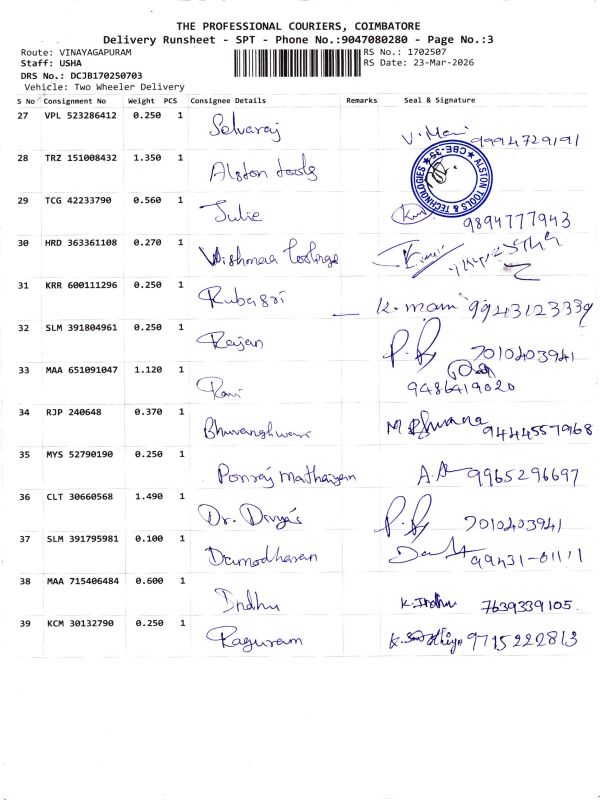 THE PROFESSIONAL COURIERS, COIMBATORE
Delivery Runsheet - SPT - Phone No.:9047080280 - Page No.:3
Route: VINAYAGAPURAM RS No.: 1702507
Staff: USHA RS Date: 23-Mar-2026
DRS No.: DCJB170250703
Vehicle: Two Wheeler Delivery
S No Consignment No Weight PCS Consignee Details Remarks Seal & Signature
27 VPL 523286412 0.250 1 Selvaraj V. Mani 9994729191
28 TRZ 151008432 1.350 1 Alston tools ALSTON TOOLS & TECHNOLOGIES ★ CBE-35 ★
29 TCG 42233790 0.560 1 Julie 9894777943
30 HRD 363361108 0.270 1 Wishmaa toolings
31 KRR 600111296 0.250 1 Rubasri K. mani 9943123339
32 SLM 391804961 0.250 1 Rajan 7010403941
33 MAA 651091047 1.120 1 Ravi 9486419020
34 RJP 240648 0.370 1 Bhuvaneshwari M Bhuvana 9444557968
35 MYS 52790190 0.250 1 Ponraj mathaiyan 9965296697
36 CLT 30660568 1.490 1 Dr. Divya's 7010403941
37 SLM 391795981 0.100 1 Damodharan 99431-01111
38 MAA 715406484 0.600 1 Indhu K. Indhu 7639339105.
39 KCM 30132790 0.250 1 Raguram 9715222813